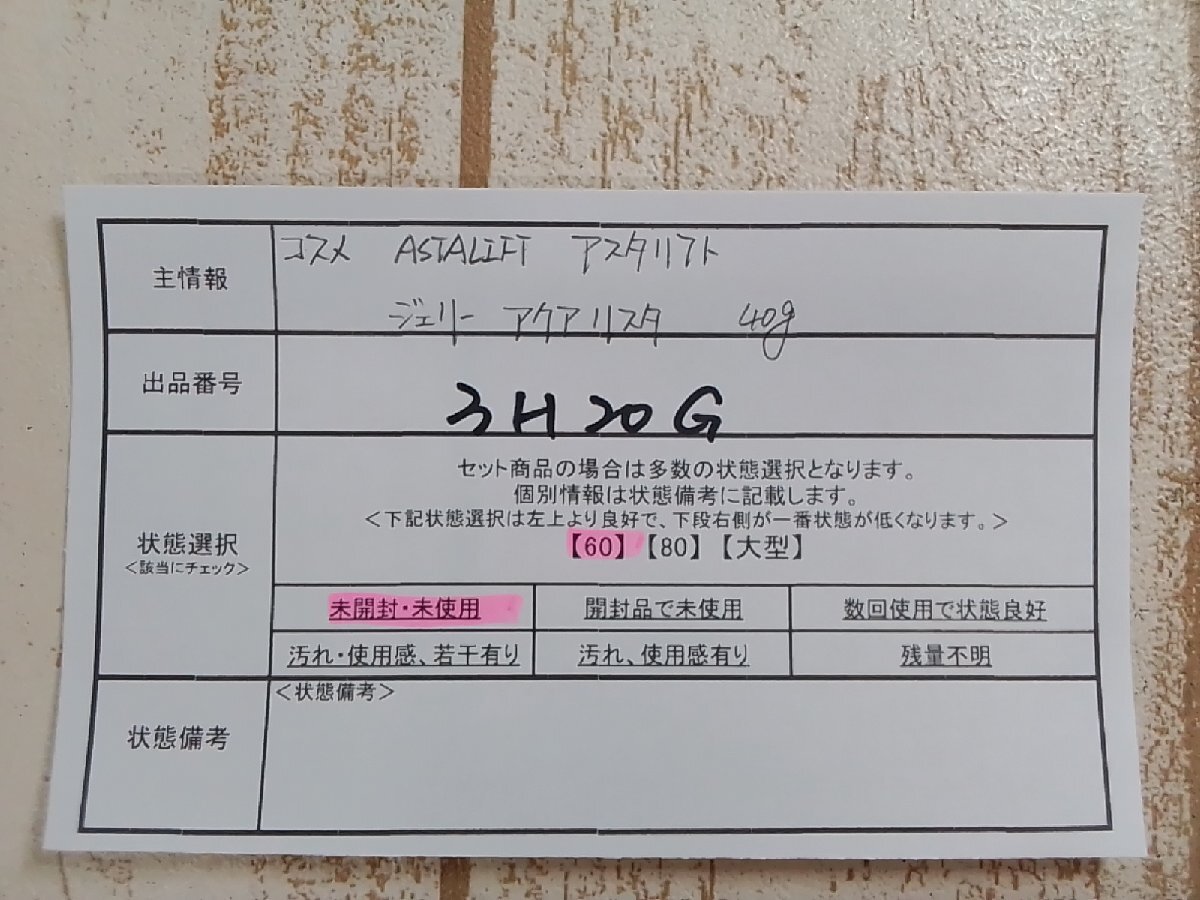 主情報
コスメ ASTALIFT アスタリフト
ジェリー アクアリスタ 40g
出品番号
3H20G
状態選択
<該当にチェック>
セット商品の場合は多数の状態選択となります。
個別情報は状態備考に記載します。
<下記状態選択は左上より良好で、下段右側が一番状態が低くなります。>
【60】【80】【大型】
未開封・未使用 開封品で未使用 数回使用で状態良好
汚れ・使用感、若干有り 汚れ、使用感有り 残量不明
状態備考
<状態備考>